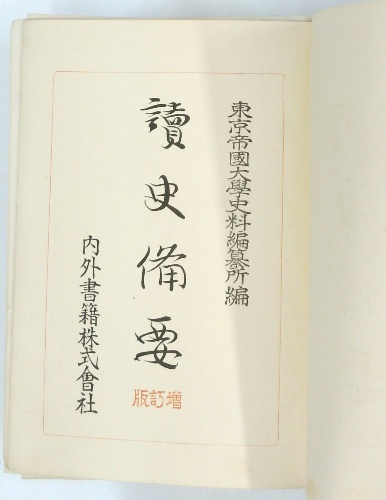 東京帝國大學史料編纂所編
讀史備要
增訂版
內外書籍株式會社